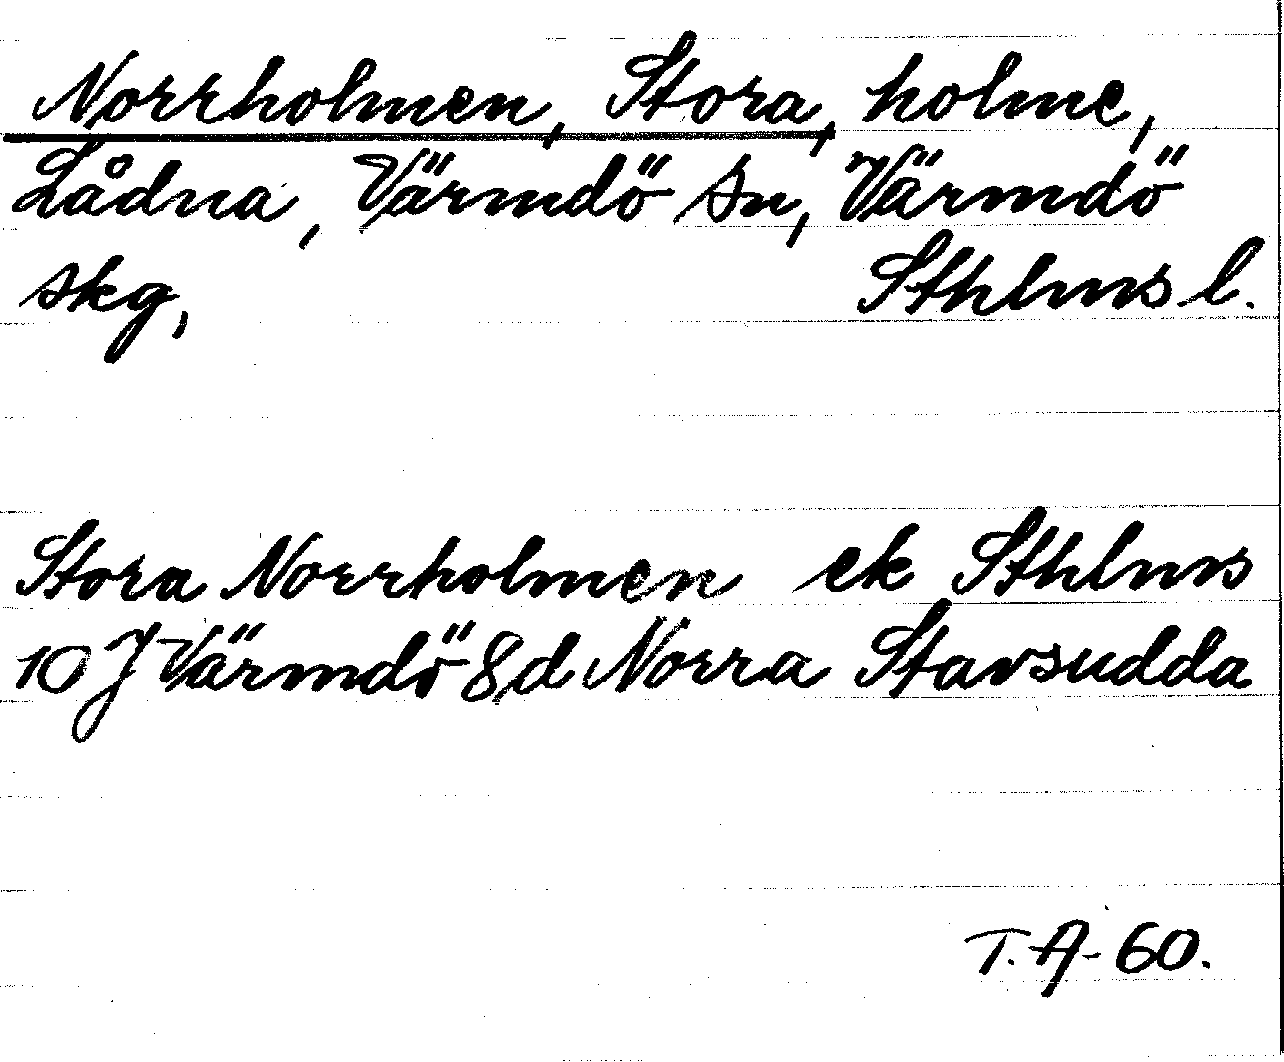 Norrholmen, Stora, holme,
Lådna, Värmdö sn, Värmdö
skg, Sthlms l.
Stora Norrholmen ek Sthlms
10 J Värmdö 8d Norra Stavsudda
T. A- 60.